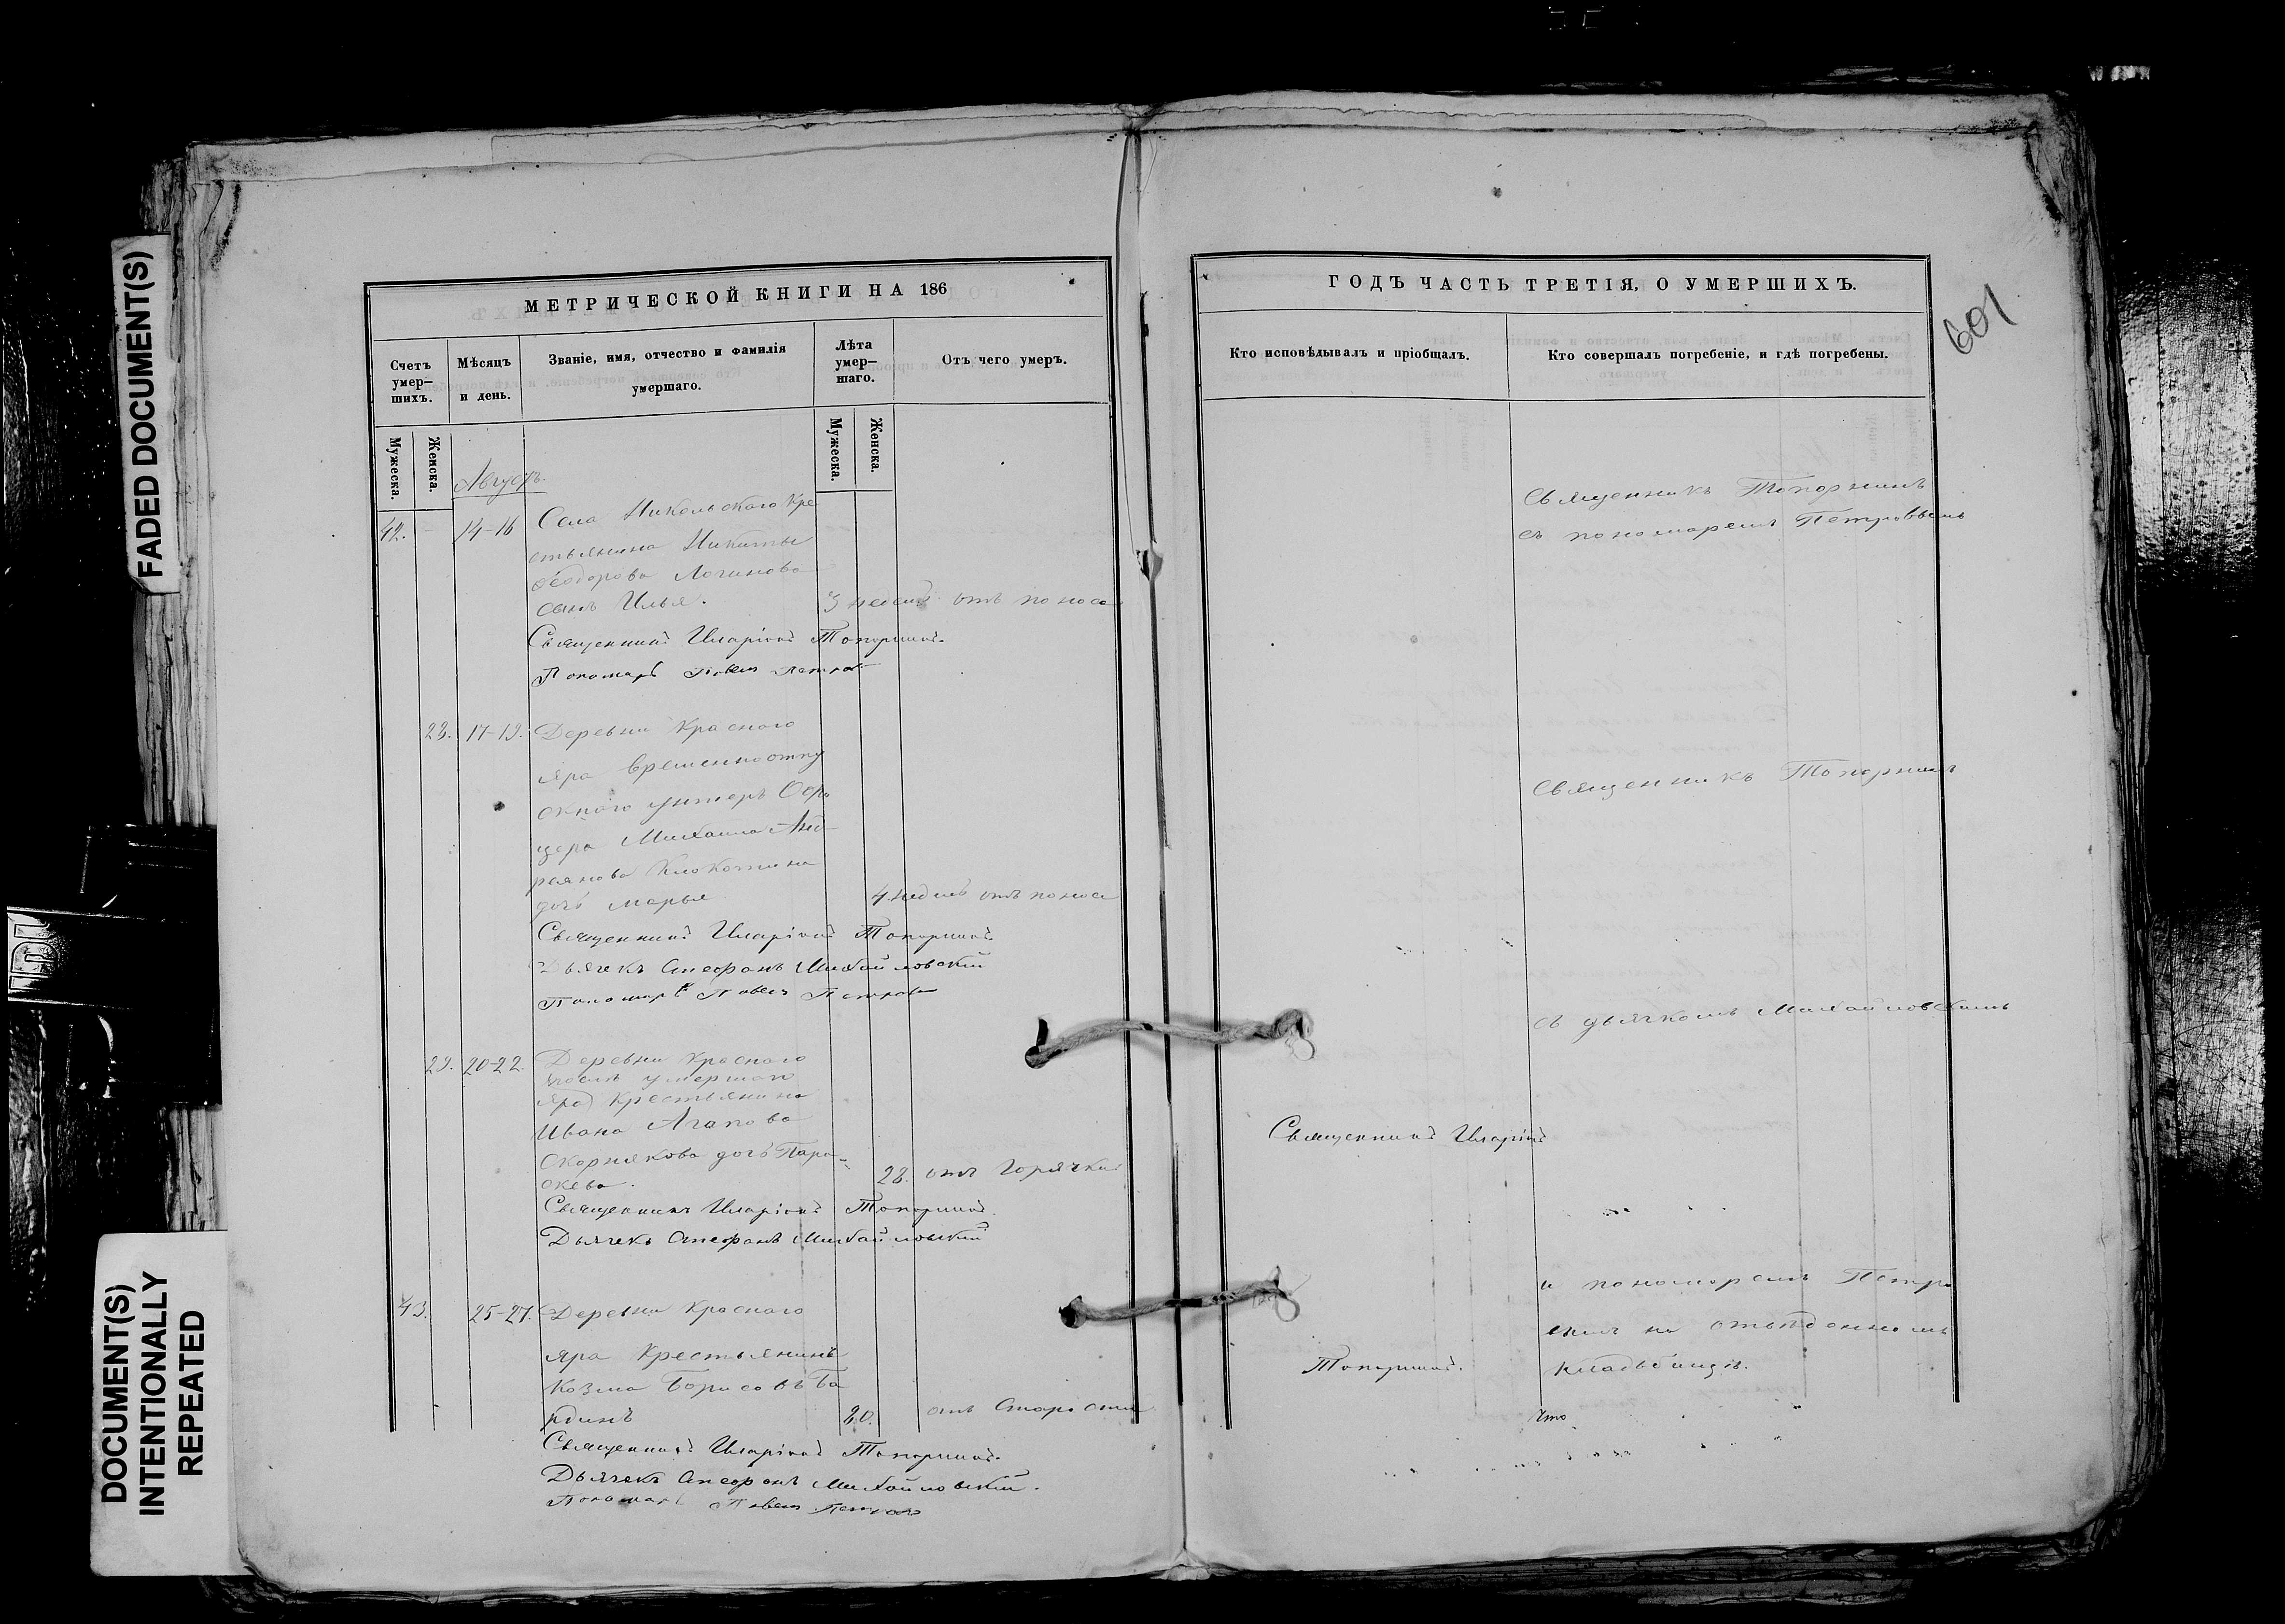 FADED DOCUMENT(S)
DOCUMENT(S)
INTENTIONALLY
REPEATED
МЕТРИЧЕСКОЙ КНИГИ НА 186
Счетъ умер–шихъ.
Мѣсяцъ и день.
Званіе, имя, отчество и фамилія умершаго.
Лѣта умер–шаго.
Отъ чего умеръ.
Мужеска.
Женска.
Мужеска.
Женска.
Августъ.
42. - 14-16 Села Никольскаго кре
стьянина Никиты
Ѳеодорова Логинова
сынъ Илья. 3 недели отъ поноса
Священникъ Иларіонъ Топорнинъ.
Пономарь Павелъ Петровъ
28. 17-19. Деревни Краснаго
яра временноотпу
скнаго унтеръ Офи
цера Михаила Анд
реянова Клокотина
дочь Марья 4 недель отъ поноса
Священникъ Иларіонъ Топорнинъ.
Дьячекъ Стефанъ Михайловскій
Пономарь Павелъ Петровъ
29. 20-22. Деревни Краснаго
послѣ умершаго
яра крестьянина
Ивана Агапова
Скорнякова дочь Пара-
скева. 28. отъ горячки
Священникъ Иларіонъ Топорнинъ.
Дьячекъ Стефанъ Михайловскій
43. 25-27. Деревни Краснаго
яра Крестьянинъ
Козма Борисовъ Ба
рдинъ 80. отъ старости
Священникъ Иларіонъ Топорнинъ.
Дьячекъ Стефанъ Михайловскій.
Пономарь Павелъ Петровъ
ГОДЪ ЧАСТЬ ТРЕТІЯ, О УМЕРШИХЪ.
601
Кто исповѣдывалъ и пріобщалъ.
Кто совершалъ погребеніе, и гдѣ погребены.
Священникъ Топорнинъ
съ пономаремъ Петровымъ
Священникъ Топорнинъ
съ дьячкомъ Михайловскимъ
Священникъ Иларіонъ
и пономаремъ Петро
вымъ на отведенномъ
Топорнинъ. кладбищѣ.
что